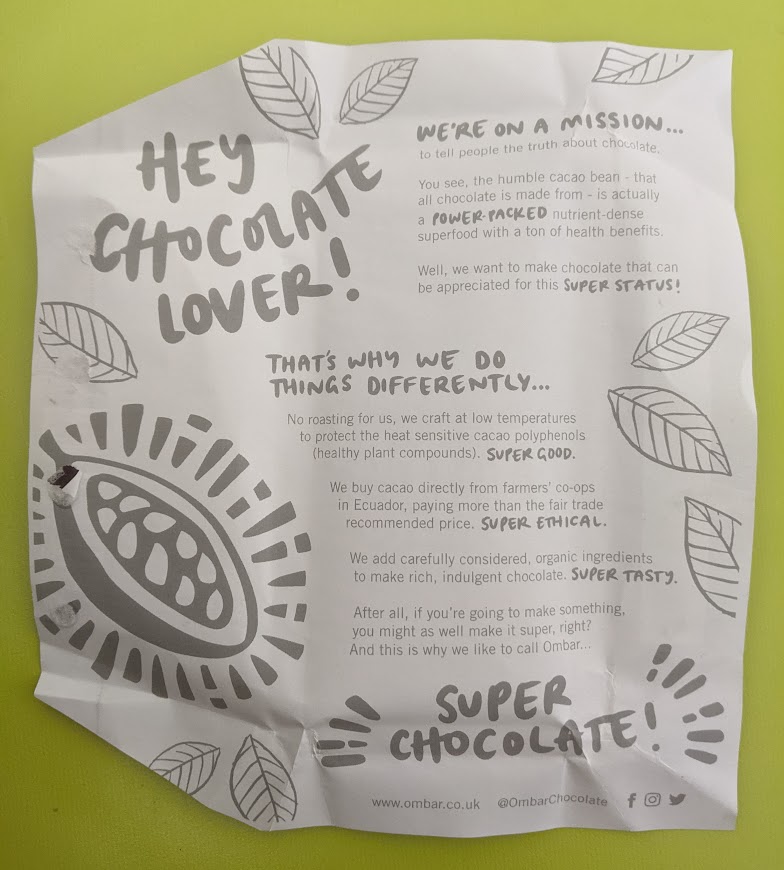 HEY
CHOCOLATE
LOVER!
WE'RE ON A MISSION...
to tell people the truth about chocolate.
You see, the humble cacao bean - that
all chocolate is made from - is actually
a POWER-PACKED nutrient-dense
superfood with a ton of health benefits.
Well, we want to make chocolate that can
be appreciated for this SUPER STATUS!
THAT'S WHY WE DO
THINGS DIFFERENTLY...
No roasting for us, we craft at low temperatures
to protect the heat sensitive cacao polyphenols
(healthy plant compounds). SUPER GOOD.
We buy cacao directly from farmers' co-ops
in Ecuador, paying more than the fair trade
recommended price. SUPER ETHICAL.
We add carefully considered, organic ingredients
to make rich, indulgent chocolate. SUPER TASTY.
After all, if you're going to make something,
you might as well make it super, right?
And this is why we like to call Ombar...
SUPER
CHOCOLATE!
www.ombar.co.uk @OmbarChocolate